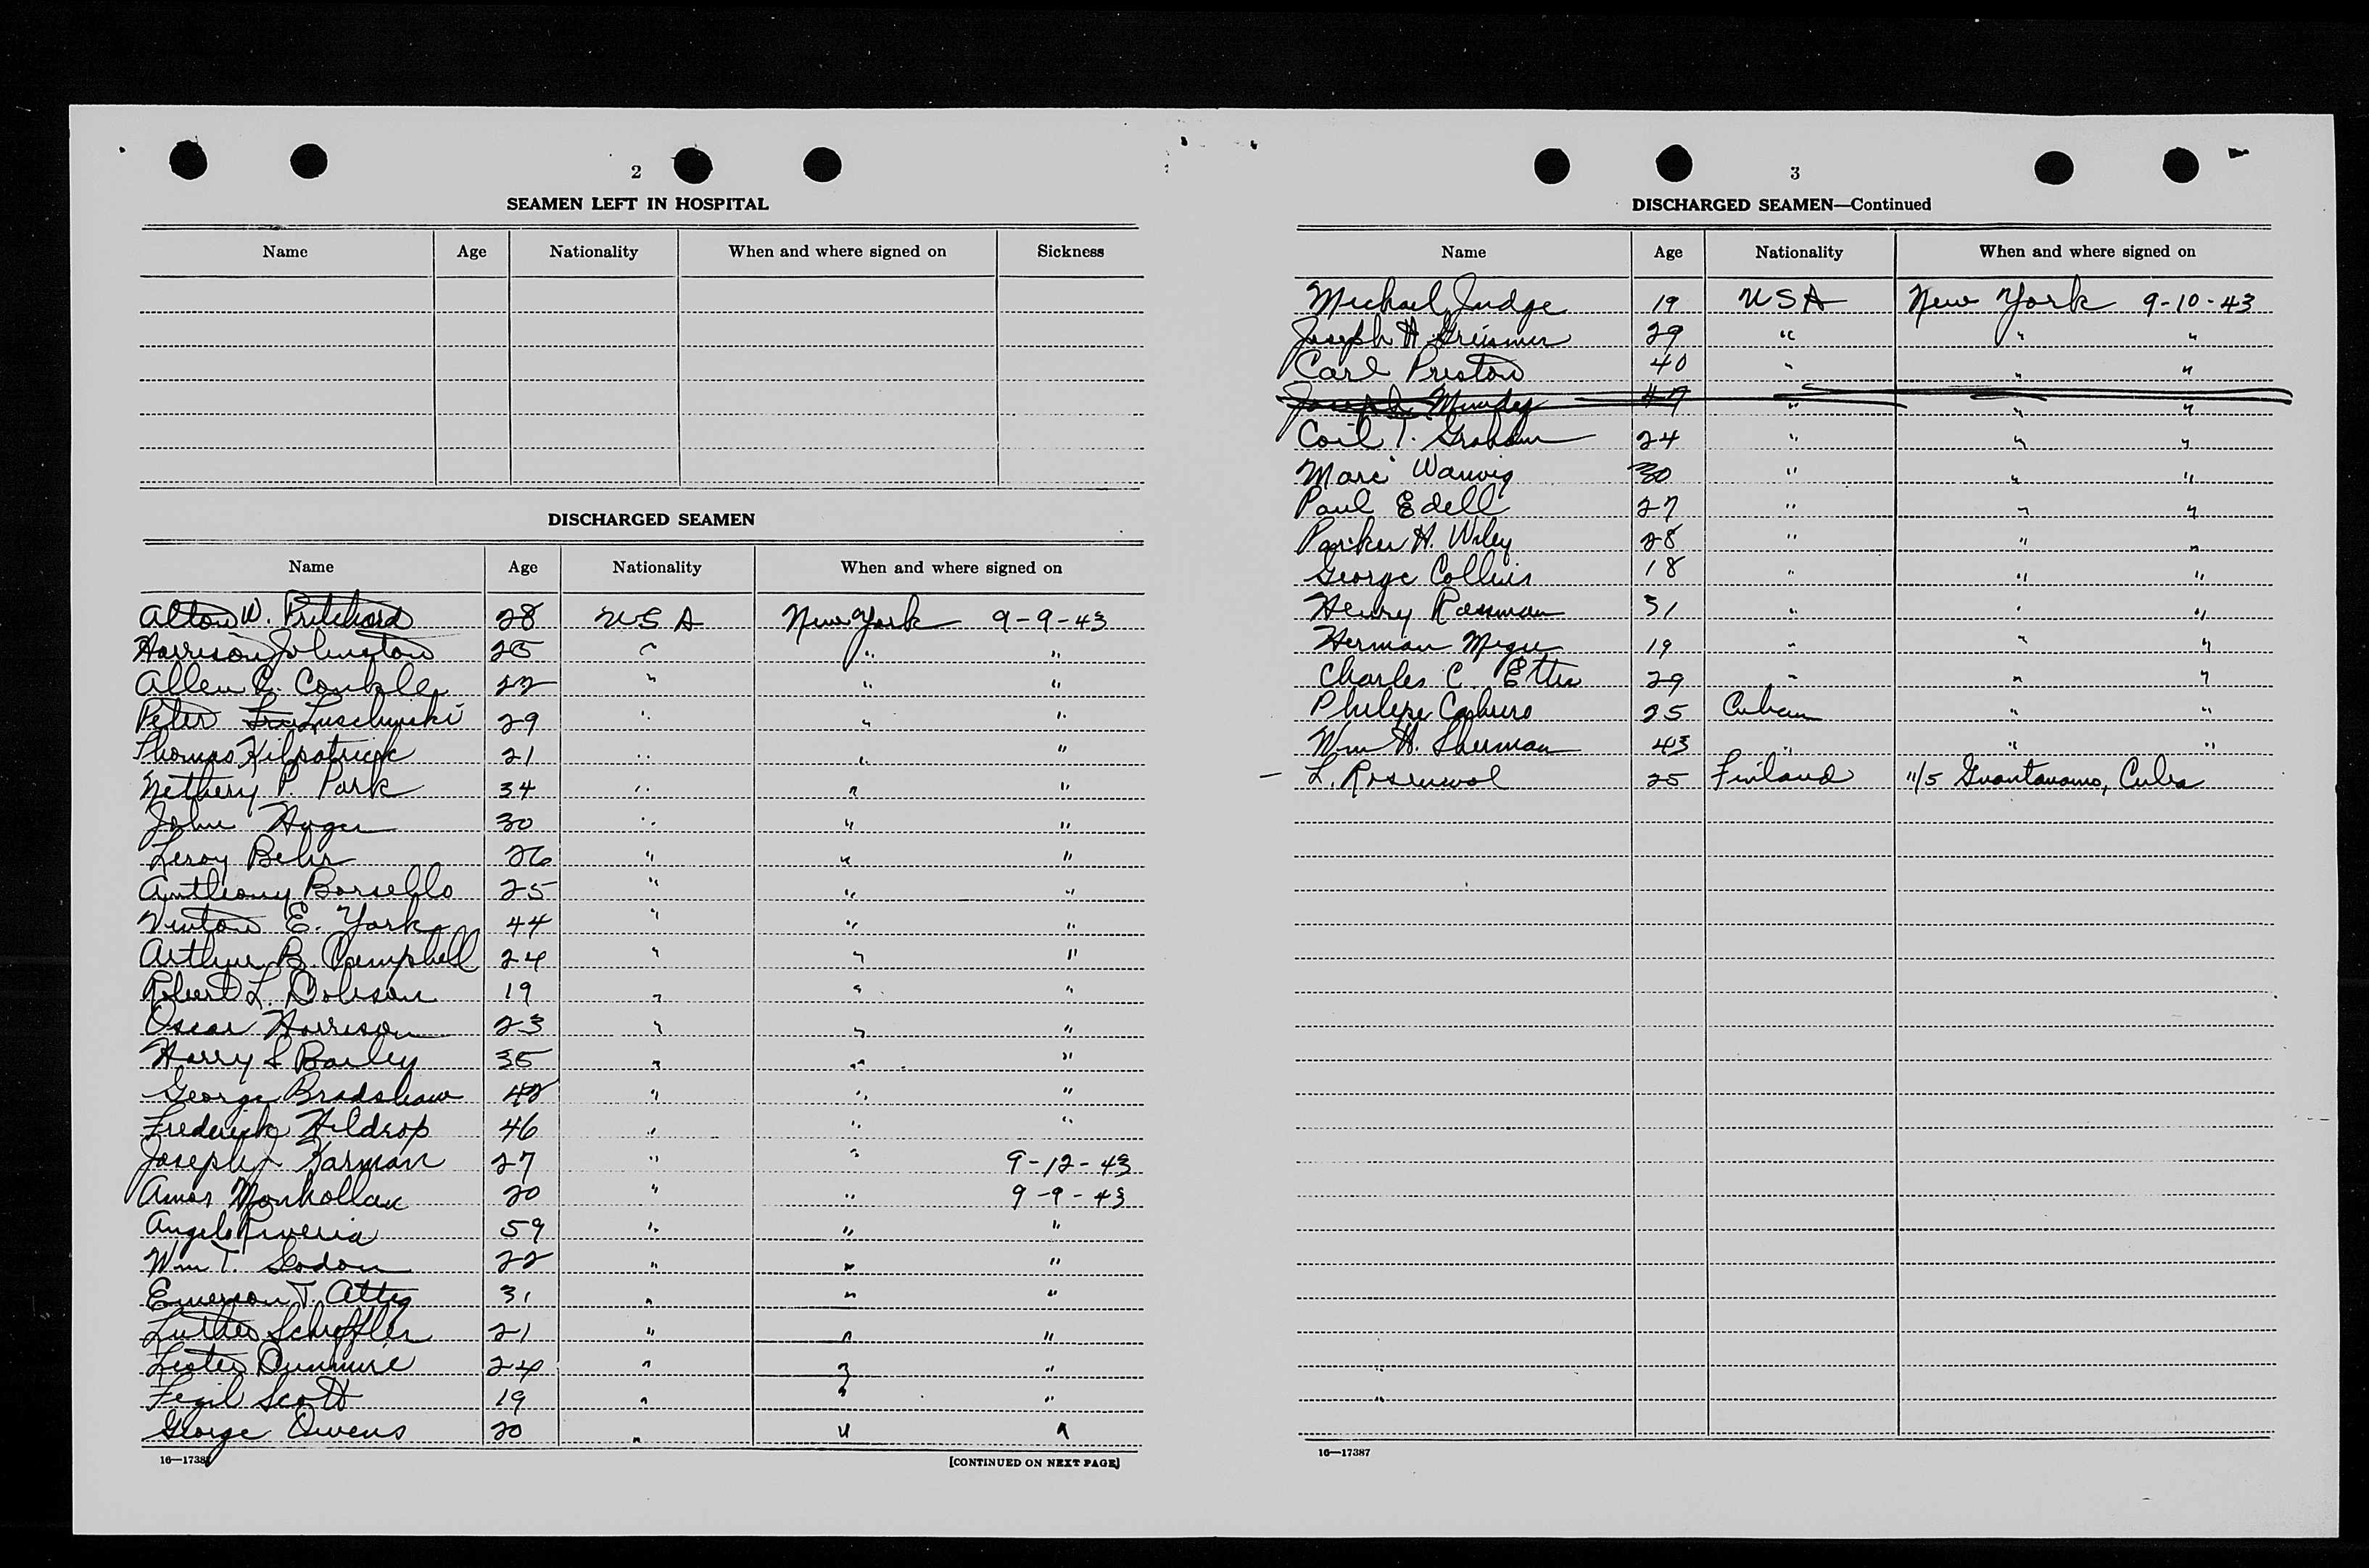 2
SEAMEN LEFT IN HOSPITAL
Name Age Nationality When and where signed on Sickness
DISCHARGED SEAMEN
Name Age Nationality When and where signed on
Alton W. Pritchard 28 USA New York 9-9-43
Harrison Johnston 25 " " "
Allen C. Conkle 22 " " "
Peter Luschinski 29 " " "
Thomas Kilpatrick 21 " " "
Nethery P. Park 34 " " "
John Huger 30 " " "
Leroy Behr 26 " " "
Anthony Borsello 25 " " "
Vinton E. York 44 " " "
Arthur B. Campbell 24 " " "
Robert L. Dobson 19 " " "
Oscar Harrison 23 " " "
Harry S Bailey 35 " " "
George Bradshaw 42 " " "
Frederick Hildrop 46 " " "
Joseph J. Karman 27 " " 9-12-43
Amos Monhollan 20 " " 9-9-43
Angelo Riveria 59 " " "
Wm T. Sodon 22 " " "
Emerson T. Attig 31 " " "
Luther Scheffler 21 " " "
Lester Dunmire 24 " " "
Scott 19 " " "
George Owens 20 " " "
16—17387 [CONTINUED ON NEXT PAGE]
3
DISCHARGED SEAMEN—Continued
Name Age Nationality When and where signed on
Michael Judge 19 USA New York 9-10-43
Joseph H. Griesmer 29 " " "
Carl Preston 40 " " "
Joseph 47 " " "
Coil T. Graham 24 " " "
Marc 30 " " "
Paul Edell 27 " " "
Parker H. Wiley 28 " " "
George Collins 18 " " "
Henry 31 " " "
Herman 19 " " "
Charles C. Etter 29 " " "
25 Cuban " "
Wm H. Sherman 43 " " "
L. Rosenwol 25 Finland 11/5 Guantanamo, Cuba
16—17387